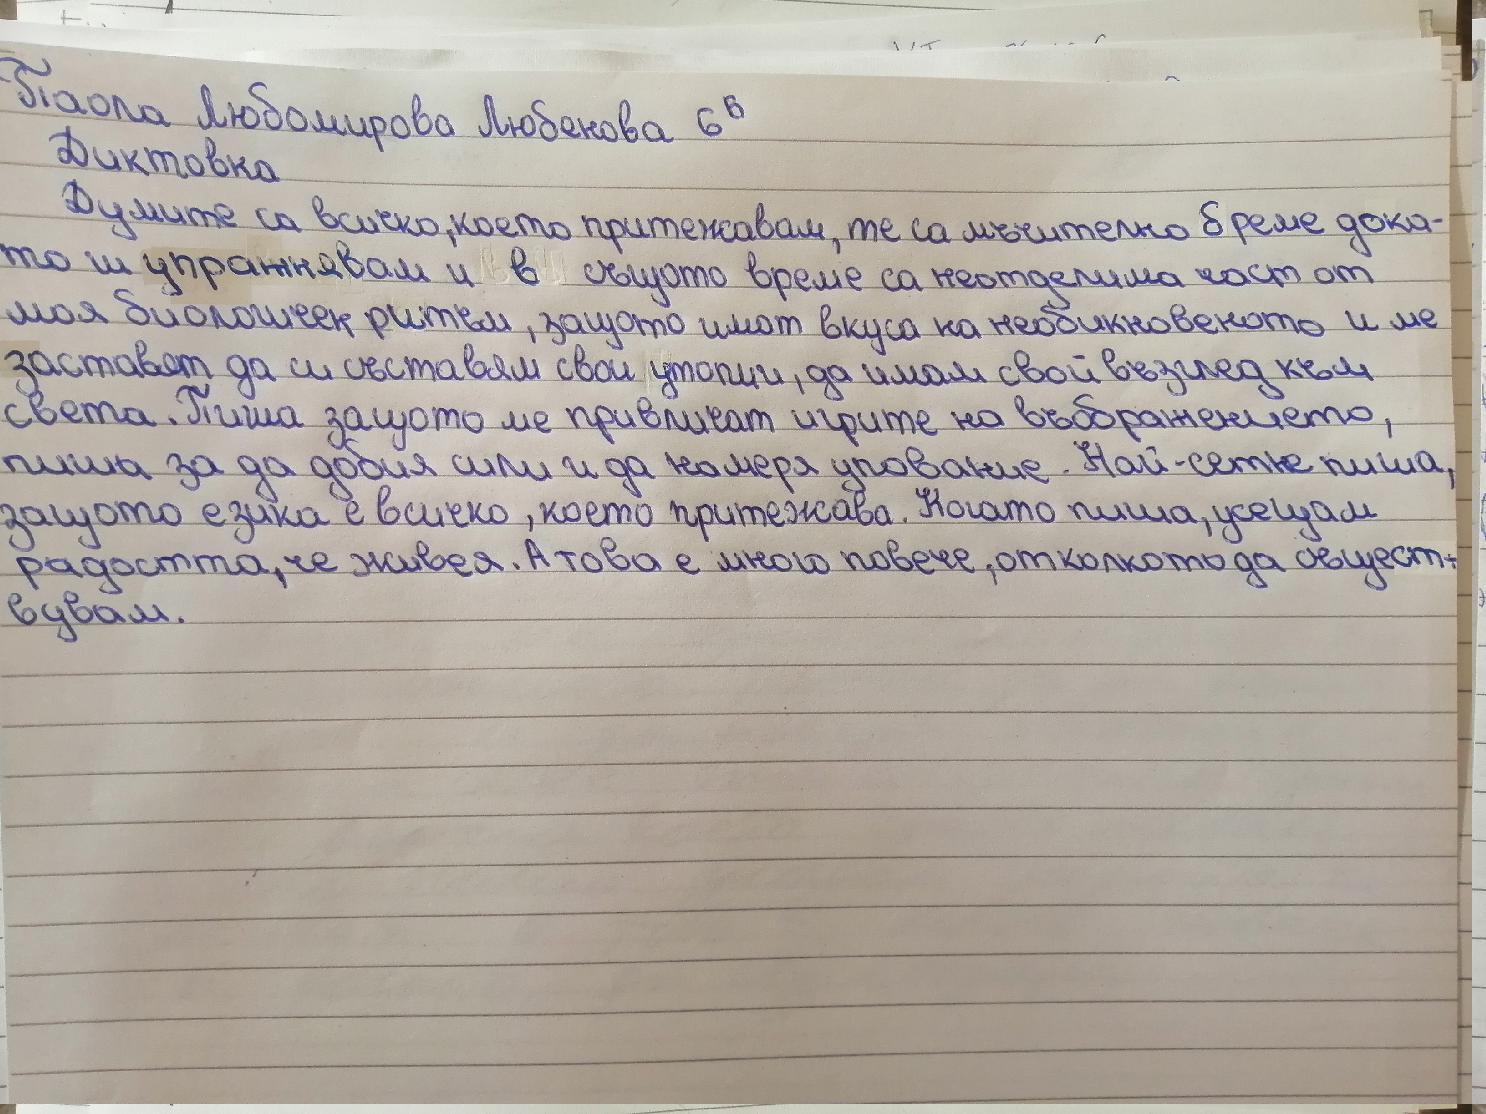 Паола Любомирова Любенова 6в
Диктовка
Думите са всичко, което притежавам, те са мъчително бреме дока-
то ги упражнявам и в същото време са неотделима част от
моя биологичен ритъм, защото имат вкуса на необикновеното и ме
заставят да си съставям свои утопии, да имам свой възглед към
света. Пиша защото ме привличат игрите на въображението,
пиша за да добия сили и да намеря упование. Най-сетне пиша,
защото езика е всичко, което притежава. Когато пиша, усещам
радостта, че живея. А това е много повече, отколкото да същест-
вувам.